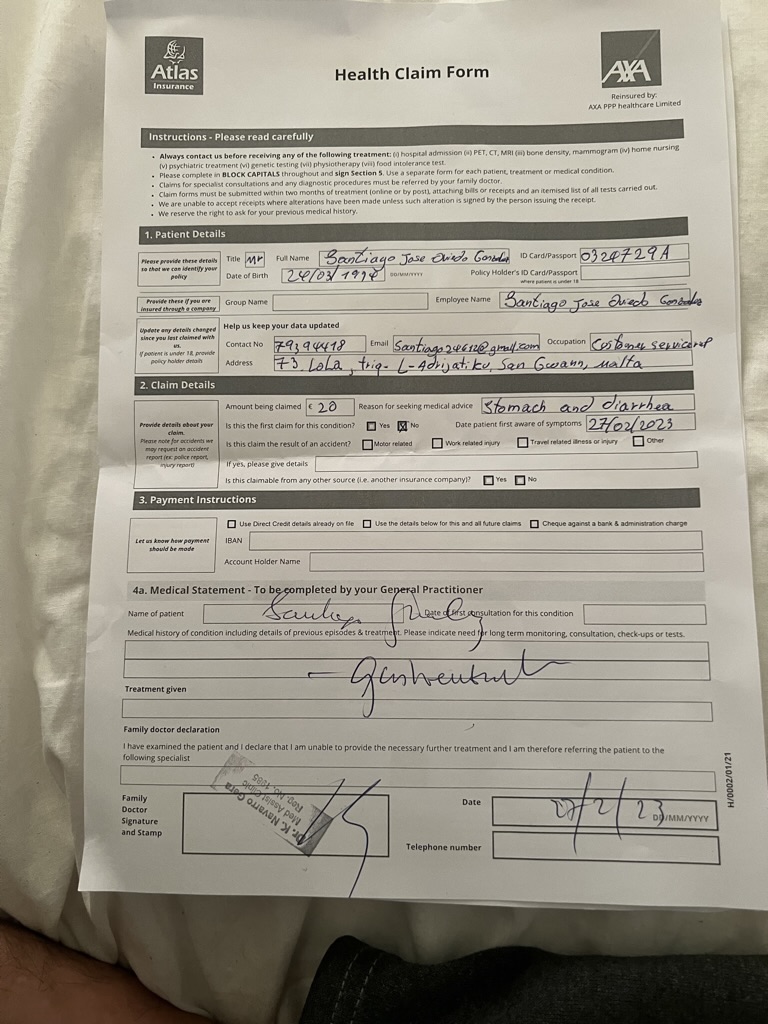 Atlas
Insurance
Health Claim Form
AXA
Reinsured by:
AXA PPP healthcare Limited
Instructions - Please read carefully
• Always contact us before receiving any of the following treatment: (i) hospital admission (ii) PET, CT, MRI (iii) bone density, mammogram (iv) home nursing
(v) psychiatric treatment (vi) genetic testing (vii) physiotherapy (viii) food intolerance test.
• Please complete in BLOCK CAPITALS throughout and sign Section 5. Use a separate form for each patient, treatment or medical condition.
• Claims for specialist consultations and any diagnostic procedures must be referred by your family doctor.
• Claim forms must be submitted within two months of treatment (online or by post), attaching bills or receipts and an itemised list of all tests carried out.
• We are unable to accept receipts where alterations have been made unless such alteration is signed by the person issuing the receipt.
• We reserve the right to ask for your previous medical history.
1. Patient Details
Please provide these details
so that we can identify your
policy
Title Mr Full Name Santiago Jose Oviedo Gonzalez ID Card/Passport 0324729A
Date of Birth 24/03/1994 DD/MM/YYYY Policy Holder's ID Card/Passport
where patient is under 18
Provide these if you are
insured through a company
Group Name Employee Name Santiago Jose Oviedo Gonzalez
Update any details changed
since you last claimed with
us.
If patient is under 18, provide
policy holder details
Help us keep your data updated
Contact No 79394418 Email Santiago24612@gmail.com Occupation Customer service rep
Address 73, Lola, triq- L-Adrijatiku, San Gwann, Malta
2. Claim Details
Provide details about your
claim.
Please note for accidents we
may request an accident
report (ex: police report,
injury report)
Amount being claimed € 20 Reason for seeking medical advice Stomach and diarrhea
Is this the first claim for this condition? Yes No Date patient first aware of symptoms 27/02/2023
Is this claim the result of an accident? Motor related Work related injury Travel related illness or injury Other
If yes, please give details
Is this claimable from any other source (i.e. another insurance company)? Yes No
3. Payment Instructions
Let us know how payment
should be made
Use Direct Credit details already on file Use the details below for this and all future claims Cheque against a bank & administration charge
IBAN
Account Holder Name
4a. Medical Statement - To be completed by your General Practitioner
Name of patient Date of first consultation for this condition
Medical history of condition including details of previous episodes & treatment. Please indicate need for long term monitoring, consultation, check-ups or tests.
Treatment given
Family doctor declaration
I have examined the patient and I declare that I am unable to provide the necessary further treatment and I am therefore referring the patient to the
following specialist
Family
Doctor
Signature
and Stamp
Dr. K. Navarro Gera
Med Assist Clinic
Reg. No. 1985
Date 27/2/23 DD/MM/YYYY
Telephone number
H/0002/01/21